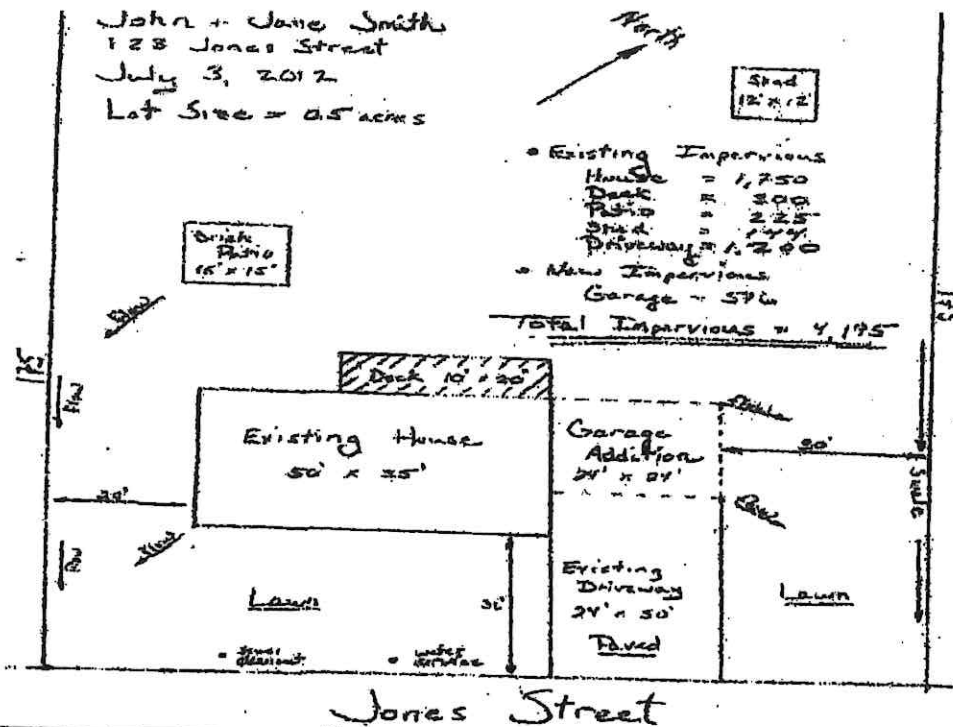 John + Jane Smith
123 Jones Street
July 3, 2012
Lot Size = 0.5 acres
North
Shed
12' x 12'
• Existing Impervious
House = 1,750
Deck = 200
Patio = 225
Shed = 144
Driveway = 1,200
• New Impervious
Garage =
Total Impervious = 4,195
Brick
Patio
15' x 15'
Flow
175
Flow
Deck 10' x 20'
Existing House
50' x 35'
Garage
Addition
24' x 24'
Flow
Swale
Flow
Flow
Flow
Lawn
Existing
Driveway
24' x 50'
Paved
Lawn
sewer
cleanout
water
service
Jones Street